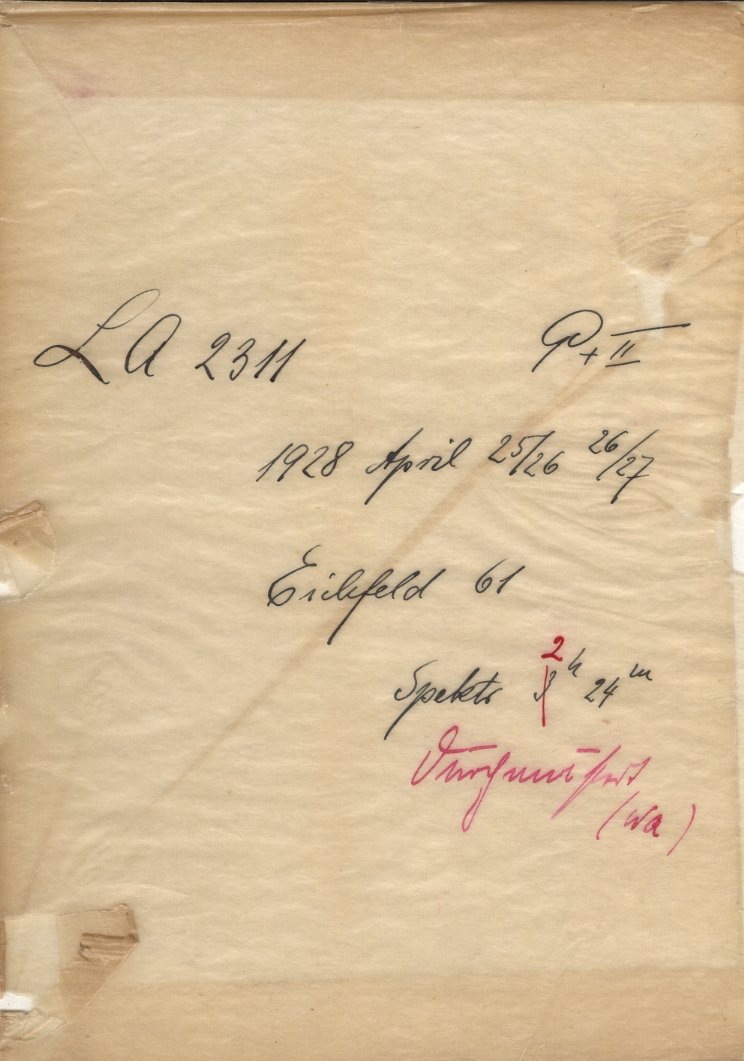 LA 2311 P + II
1928 April 25/26 26/27
Eichfeld 61
Spektr 2 3 h 24 m
Durchmustert
(Wa)